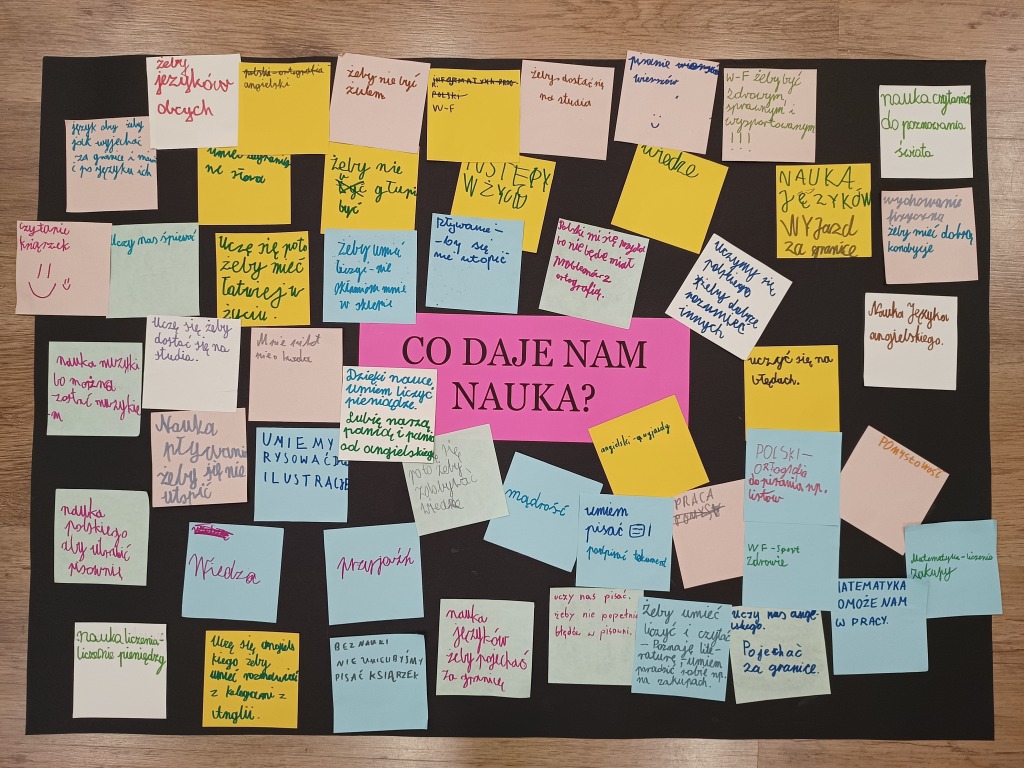 żeby
języków
obcych
polski-ortografia
angielski
żeby nie być
żulem
INFORMATYKA
POLSKI
W-F
żeby dostać się
na studia
pisanie wierszów
wierszów
W-F żeby być
zdrowym,
sprawnym i
wysportowanym
!!!
nauka czytania
do poznowania
świata
język aby żeby
jak wyjechać
za granicę i
i po języku ich
na słowa
żeby nie
być głupi
być
W ŻYCIU
wiedze
NAUKA
JĘZYKÓW
WYJAZD
za granicę
wychowanie
fizyczną
żeby mieć dobrą
kondycję
czytanie
książek
Uczy nas śpiewać
Uczę się poto
żeby mieć
łatwiej w
życiu.
żeby umić
liczyć-nie
okłamiom mnie
w sklepie
pływanie-
-by się
nie utopić
Polski mi się przyda
bo nie będe miał
problemów z
ortografią.
Uczymy się
polskiego
żeby dobrze
rozumieć
innych
Nauka Języka
angielskiego.
nauka muzyki
bo można
zostać muzykie
m
Uczę się żeby
dostać się na
studia.
CO DAJE NAM
NAUKA?
Dzięki nauce
umiem liczyć
pieniądze.
Lubię naszą
panią i panią
od angielskiego
uczyć się na
błędach.
Nauka
pływania
żeby się nie
utopić
UMIEMY
RYSOWAĆ
ILUSTRACJE
się
poto żeby
zdobywać
wiedzę
angielski-wyjazdy
POLSKI-
ORTOGRAFIA
do pisania np.
listów
POMYSŁOWOŚĆ
nauka
polskiego
aby
pisownię
Wiedza
przyjaźń
mądrość
umiem
pisać
podpisać dokument
PRACA
WF-Sport
Zdrowie
Matematyka-liczenie
zakupy
nauka liczenia-
liczenie pieniędzy
Uczę się angiels
kiego żeby
umieć rozmawiać
z kolegami z
Anglii.
BEZ NAUKI
NIE UMIELIBYŚMY
PISAĆ KSIĄŻEK
nauka
języków
żeby pojechać
za granicę
uczy nas pisać.
żeby nie popełnić
błędów w pisowni.
Żeby umieć
liczyć i czytać
-Poznaję lite-
raturę, umiem
poradzić sobie np.
na zakupach.
Uczy nas angie-
lskiego.
Pojechać
za granicę.
MATEMATYKA
POMOŻE NAM
W PRACY.